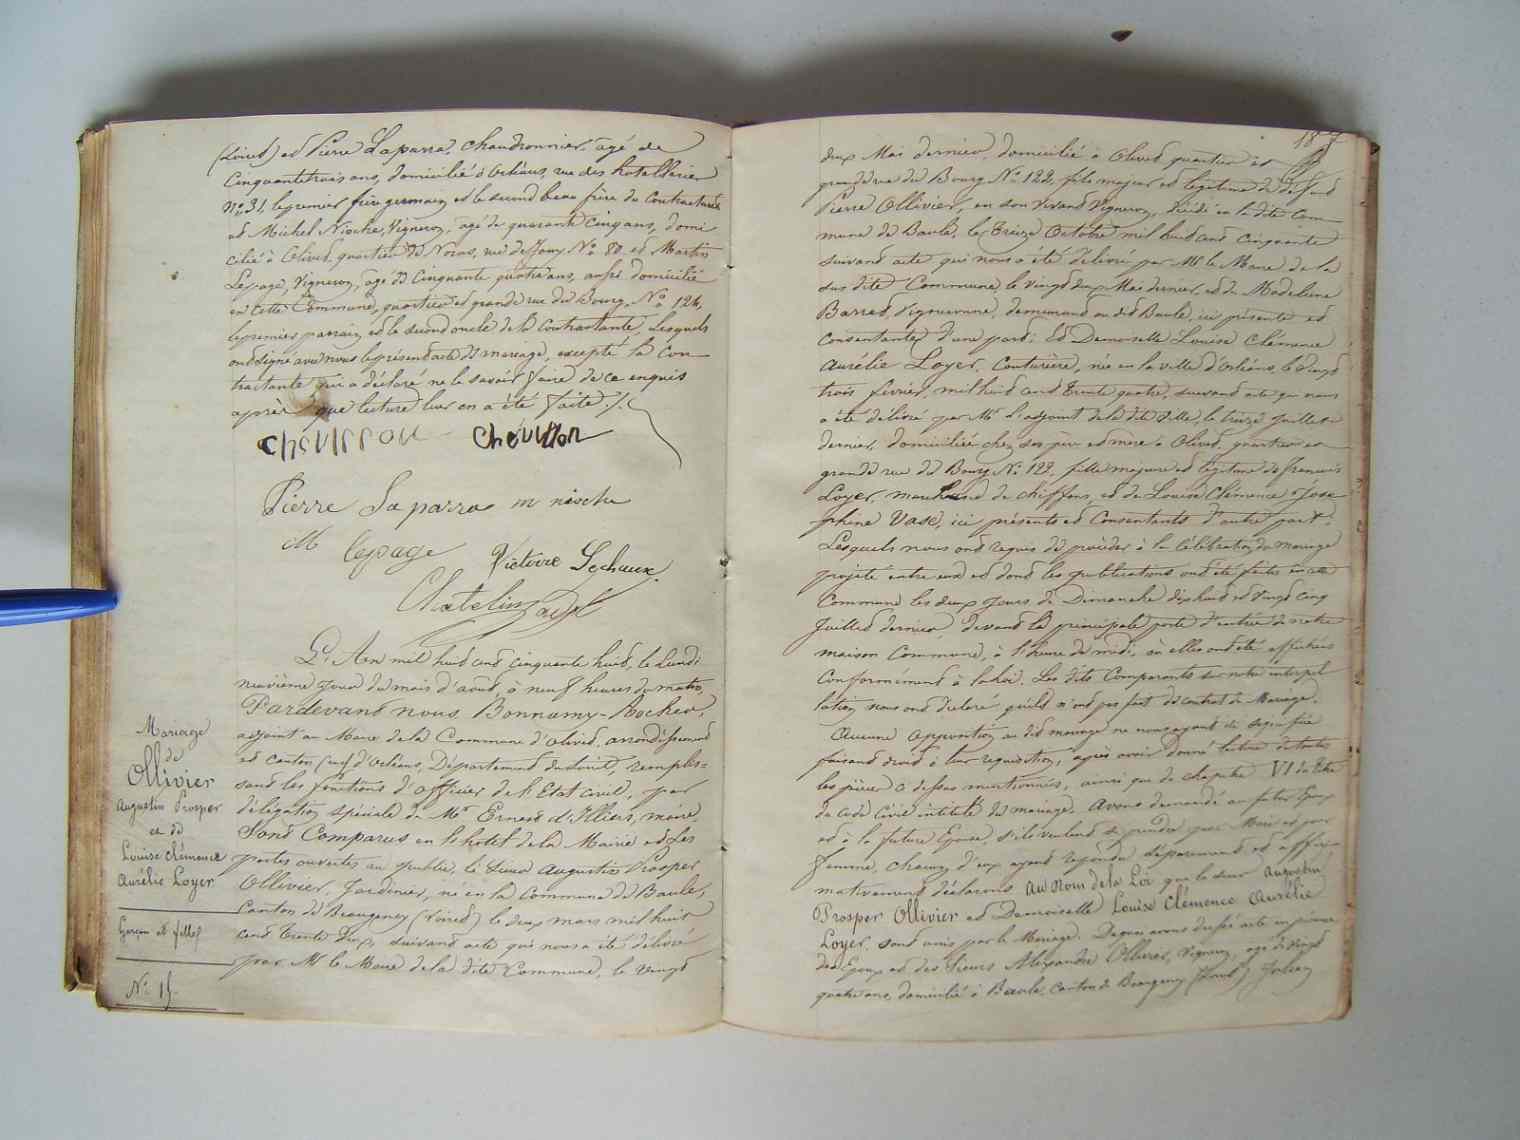 (Loiret) et Pierre Laparra, chaudronnier, agé de
Cinquante trois ans, domicilié à Orléans, rue des hotelleries
No. 31, le premier frère germain et le second beau frère du Contractant
et Michel Nioche, Vigneron, agé de quarante cinq ans, domi
cilié à Olivet, quartier du Noras, rue de Jouy No. 80. et Martin
Lepage, Vigneron, agé de Cinquante quatre ans, aussi domicilié
en cette Commune, quartier et grande rue du Bourg, No. 124,
le premier parrain et le second oncle de la Contractante, Lesquels
ont signé avec nous le présent acte de mariage, excepté la con
tractante qui a déclaré ne le savoir faire de ce enquis
après que lecture leur en a été faite ./.
Chevillon Chevillon
Pierre Laparra m nioche
M lepage Victoire Lechaux
Chatelin adjt
L'An mil huit cent cinquante huit, le Lundi
neuvième jour du mois d'août, à neuf heures du matin,
Pardevant nous Bonnamy-Rocher,
adjoint au Maire de la Commune d'olivet, arrondissement
et canton sud d'Orléans, Département du Loiret, remplis=
sant les fonctions d'officier de l'Etat civil, par
délégation spéciale de Mr. Ernest d'Illiers, maire,
Sont Comparus en l'hotel de la Mairie et Les
portes ouvertes au public, le Sieur Augustin Prosper
Ollivier, Jardinier, né en la Commune de Baule,
Canton de Beaugency (Loiret) le deux mars mil huit
cent trente deux, suivant acte qui nous a été délivré
par Mr le Maire de la dite Commune, le vingt
Mariage
de
Ollivier
Augustin Prosper
et de
Louise Clémence
Aurélie Loyer
Garçon et fille
No. 15.
187
deux Mai dernier, domicilié à Olivet quartier et
grande rue du Bourg No. 122, fils majeur et légitime de défunt
Pierre Ollivier, en son vivant Vigneron, décédé en la dite Com
mune de Baule, le treize Octobre mil huit cent cinquante
suivant acte qui nous a été délivré par Mr le Maire de la
sus dite Commune, le vingt deux Mai dernier, et de Madeleine
Barret, Vigneronne, demeurant au dit Baule, ici présente et
consentante, d'une part: Et Demoiselle Louise Clémence
Aurélie Loyer, Couturière, née en la ville d'Orléans, le vingt
trois février, mil huit cent trente quatre, suivant acte qui nous
a été délivré par Mr L'adjoint de la dite Ville, le treize Juillet
dernier, domiciliée chez ses père et mère à Olivet, quartier et
grande rue du Bourg No. 122, fille majeure et légitime de francois
Loyer, marchand de chiffons, et de Louise Clémence Jose
phine Vasé, ici présents et Consentants d'autre part.
Lesquels nous ont requis de procéder à la Célébration du mariage
projeté entre eux et dont les publications ont été faites en cette
Commune les deux Jours de Dimanche dix huit et vingt cinq
Juillet dernier, devant la principale porte d'entrée de notre
maison Commune, à l'heure de midi, où elles ont été affichées
Conformément à la Loi. Les dits Comparants sur notre interpel
lation, nous ont déclaré qu'ils n'ont pas fait de contrat de Mariage.
Aucune opposition au dit mariage ne nous ayant été signifiée
faisant droit à leur réquisition, après avoir donné lecture de toutes
les pièces ci dessus mentionnées, ainsi que du chapitre VI du titre
du code Civil intitulé du mariage. Avons demandé au futur Epoux
et à la future Epouse, s'ils veulent se prendre pour Mari et pour
femme, chacun d'eux ayant répondu séparément et affir=
mativement déclarons Au Nom de la Loi que le sieur Augustin
Prosper Ollivier et Demoiselle Louise Clémence Aurélie
Loyer, sont unis par le Mariage. De quoi avons dressé acte en présence
des Epoux et des Sieurs Alexandre Ollivier, Vigneron, agé de vingt
quatre ans, domicilié à Baule, canton de Beaugency (Loiret) Julien